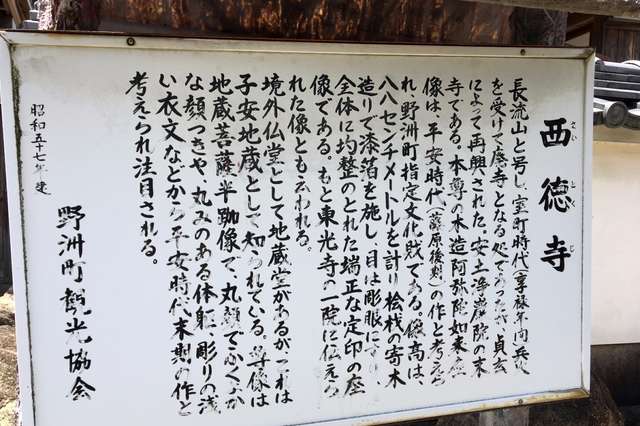 西徳寺
さいとくじ
長流山と号し、室町時代(享禄年間)兵火
を受けて廃寺となる処であったが、貞玄
によって再興された、安土浄厳院の末
寺である。本尊の木造阿弥陀如来座
像は、平安時代(藤原後期)の作と考えら
れ、野洲町指定文化財である。像高は、
八八センチメートルを計り桧材の寄木
造りで漆箔を施し、目は彫眼にすり、
全体に均整のとれた端正な定印の座
像である。もと東光寺の一院に伝えら
れた像ともおわれる。
境外仏堂として地蔵堂があるがこれは
子安地蔵として知られている。尊像は
地蔵菩薩半跏像で、丸顔でふくよか
な顔つきや、丸みのある体躯、彫りの浅
い衣文などから平安時代末期の作と
考えられ注目される。
昭和五十七年 建
野洲町観光協会